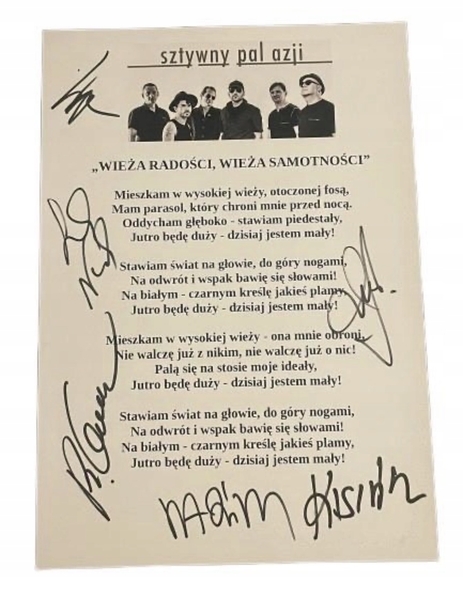 sztywny pal azji
„WIEŻA RADOŚCI, WIEŻA SAMOTNOŚCI”
Mieszkam w wysokiej wieży, otoczonej fosą,
Mam parasol, który chroni mnie przed nocą.
Oddycham głęboko - stawiam piedestały,
Jutro będę duży - dzisiaj jestem mały!
Stawiam świat na głowie, do góry nogami,
Na odwrót i wspak bawię się słowami!
Na białym - czarnym kreślę jakieś plamy,
Jutro będę duży - dzisiaj jestem mały!
Mieszkam w wysokiej wieży - ona mnie obroni,
Nie walczę już z nikim, nie walczę już o nic!
Palą się na stosie moje ideały,
Jutro będę duży - dzisiaj jestem mały!
Stawiam świat na głowie, do góry nogami,
Na odwrót i wspak bawię się słowami!
Na białym - czarnym kreślę jakieś plamy,
Jutro będę duży - dzisiaj jestem mały!